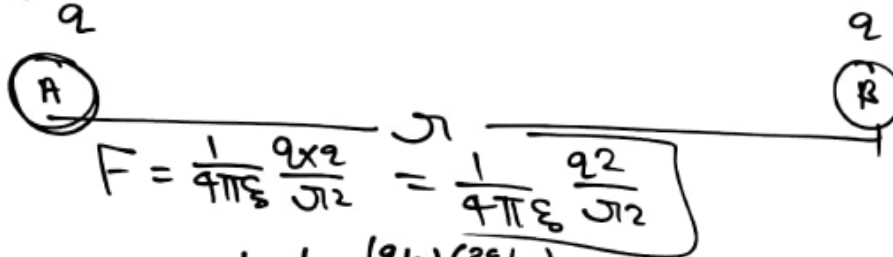 q q
A r B
F = 1/4πε₀ q×q/r² = 1/4πε₀ q²/r²